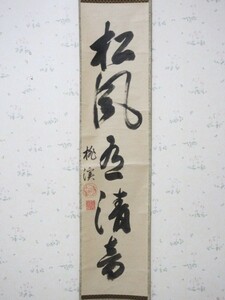 松風有清音
桃溪